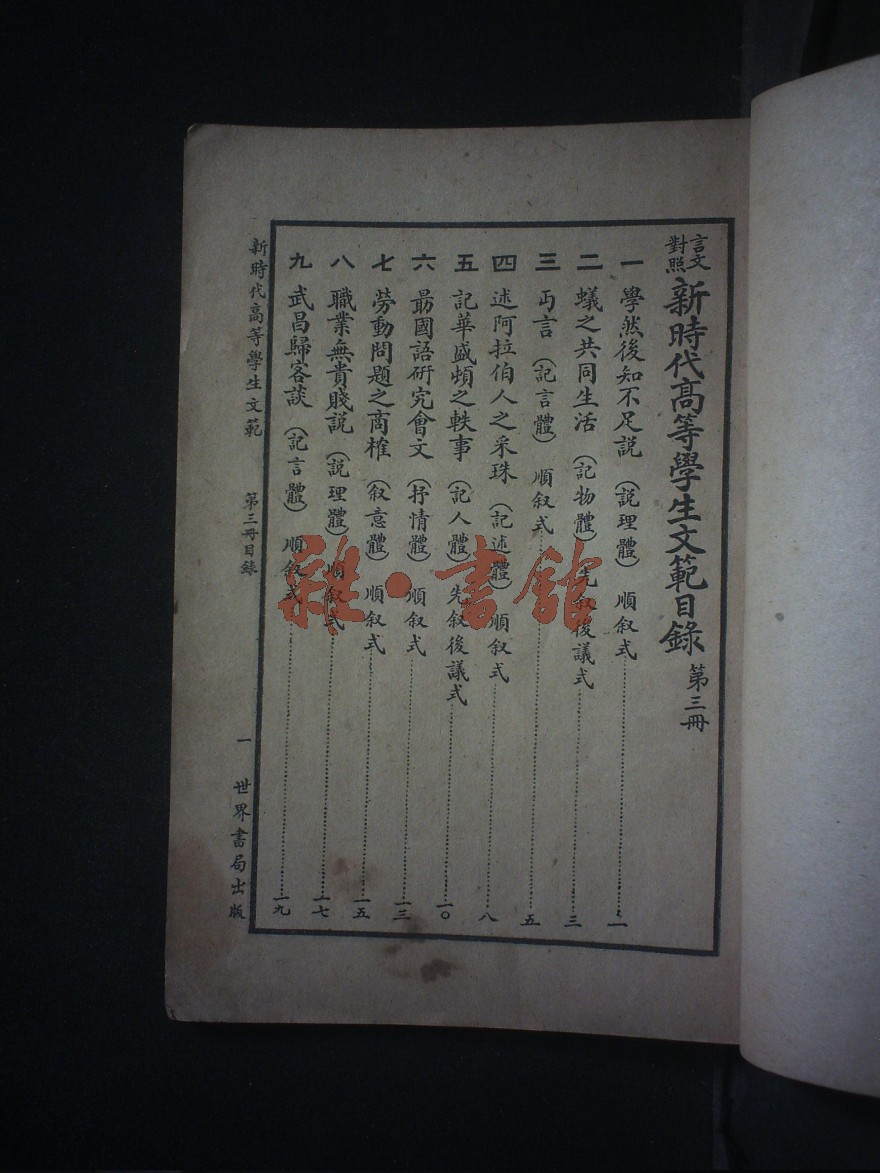 言文對照新時代高等學生文範目錄 第三冊
一 學然後知不足説（説理體） 順叙式 一
二 蟻之共同生活（記物體）先叙後議式 三
三 丐言（記言體） 順叙式 五
四 述阿拉伯人之采珠（記述體） 順叙式 八
五 記華盛頓之軼事（記人體）先叙後議式 一〇
六 勗國語研究會文（抒情體） 順叙式 一三
七 勞動問題之商榷（叙意體） 順叙式 一五
八 職業無貴賤説（説理體）順叙式 一七
九 武昌歸客談（記言體） 順叙式 一九
新時代高等學生文範 第三冊目錄 一 世界書局出版
雜·書館